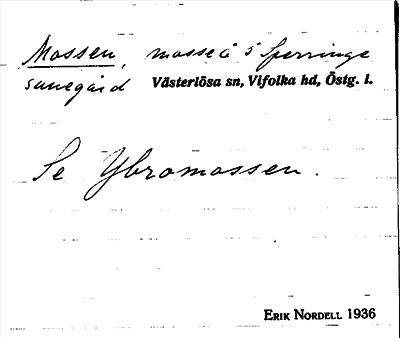 Mossen, mosse å 5 Sperringe
Västerlösa sn, Vifolka hd, Östg. l.
Se Ybromossen.
ERIK NORDELL 1936